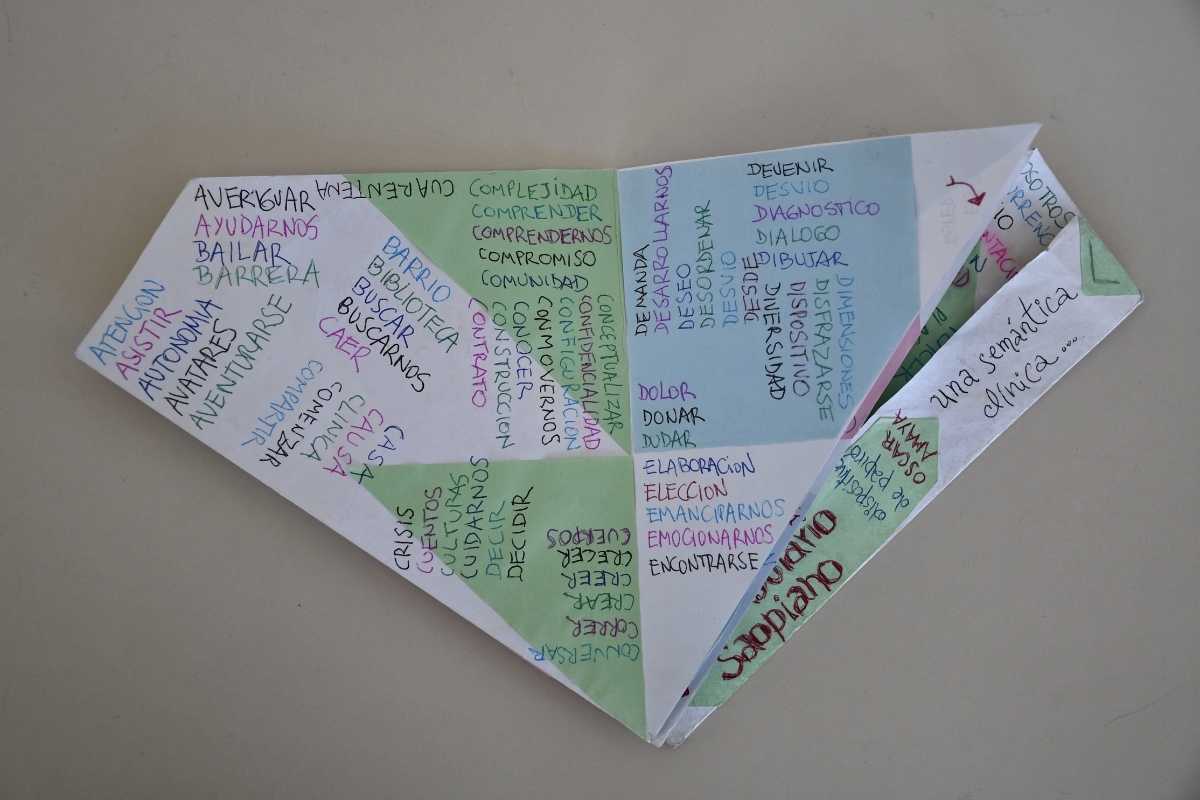 ATENCION
ASISTIR
AUTONOMIA
AVATARES
AVENTURARSE
AVERIGUAR
AYUDARNOS
BAILAR
BARRERA
BARRIO
BIBLIOTECA
BUSCAR
BUSCARNOS
CAER
CASA
CAUSA
CLINICA
COMENZAR
COMPARTIR
COMPLEJIDAD
COMPRENDER
COMPRENDERNOS
COMPROMISO
COMUNIDAD
CONCEPTUALIZAR
CONFIDENCIALIDAD
CONFIGURACION
CONMOVERNOS
CONOCER
CONSTRUCCION
CONTRATO
CONVERSAR
CORRER
CREAR
CREER
CRECER
CUERPOS
CRISIS
CUENTOS
CULTURAS
CUIDARNOS
DECIR
DECIDIR
CUARENTENA
DEMANDA
DESARROLLARNOS
DESEO
DESORDENAR
DESVIO
DESDE
DEVENIR
DESVIO
DIAGNOSTICO
DIALOGO
DIBUJAR
DIMENSIONES
DISFRAZARSE
DISPOSITIVO
DIVERSIDAD
DOLOR
DONAR
DUDAR
ELABORACION
ELECCION
EMANCIPARNOS
EMOCIONARNOS
ENCONTRARSE
una semántica
clínica...
OSCAR
AMAYA
dispositivo
de papiro